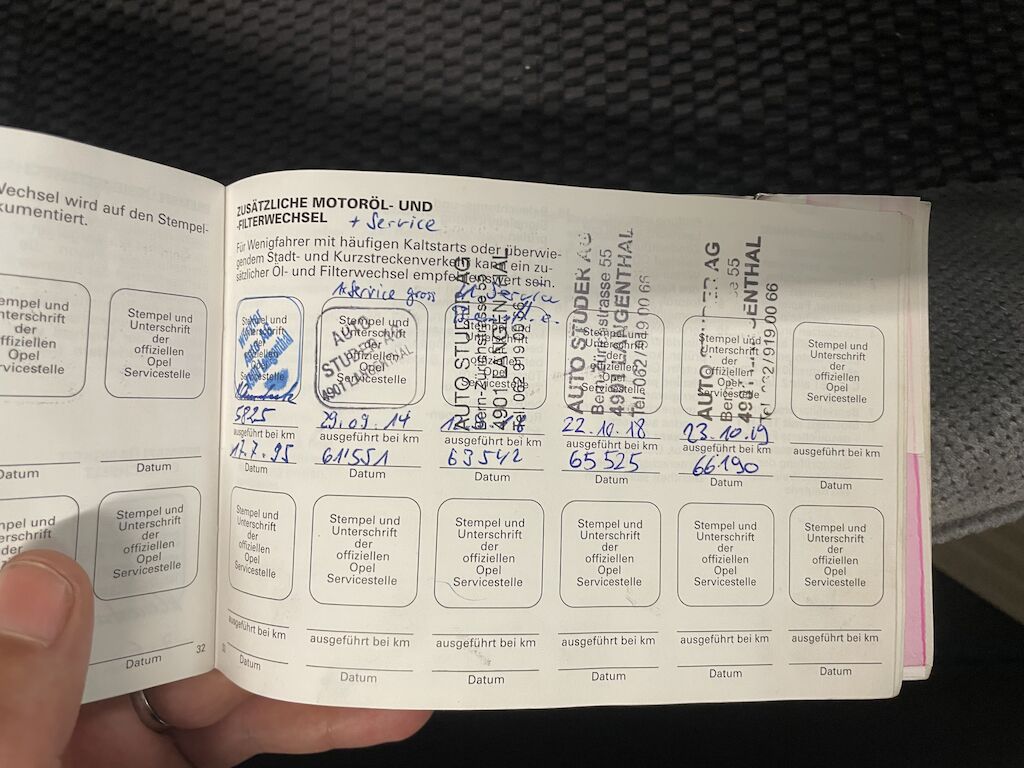 Wechsel wird auf den Stempel-
kumentiert.
mpel und
terschrift
der
ffiziellen
Opel
rvicestelle
Stempel und
Unterschrift
der
offiziellen
Opel
Servicestelle
Datum
Datum
mpel und
terschrift
der
Stempel und
Unterschrift
der
offiziellen
Opel
Servicestelle
Datum
32
ZUSÄTZLICHE MOTORÖL- UND
-FILTERWECHSEL + Service
Für Wenigfahrer mit häufigen Kaltstarts oder überwie-
gendem Stadt- und Kurzstreckenverkehr kann ein zu-
sätzlicher Öl- und Filterwechsel empfehlenswert sein.
Service gross
Service
Stempel und
Unterschrift
der
offiziellen
Opel
Servicestelle
AUTO
STUDER AG
4901 LANGENTHAL
AUTO STUDER AG
Bern-Zürichstrasse 55
4901 LANGENTHAL
Tel. 062 / 919 00 66
AUTO STUDER AG
Bern-Zürichstrasse 55
4901 LANGENTHAL
Tel. 062 / 919 00 66
AUTO AG
55
ENTHAL
919 00 66
Stempel und
Unterschrift
der
offiziellen
Opel
Servicestelle
5825
29.09.14
22.10.18
23.10.19
ausgeführt bei km
ausgeführt bei km
ausgeführt bei km
ausgeführt bei km
ausgeführt bei km
ausgeführt bei km
17.7.95
61'551
63542
65525
66190
Datum
Datum
Datum
Datum
Datum
Datum
Stempel und
Unterschrift
der
offiziellen
Opel
Servicestelle
Stempel und
Unterschrift
der
offiziellen
Opel
Servicestelle
Stempel und
Unterschrift
der
offiziellen
Opel
Servicestelle
Stempel und
Unterschrift
der
offiziellen
Opel
Servicestelle
Stempel und
Unterschrift
der
offiziellen
Opel
Servicestelle
Stempel und
Unterschrift
der
offiziellen
Opel
Servicestelle
ausgeführt bei km
ausgeführt bei km
ausgeführt bei km
ausgeführt bei km
ausgeführt bei km
ausgeführt bei km
Datum
Datum
Datum
Datum
Datum
Datum